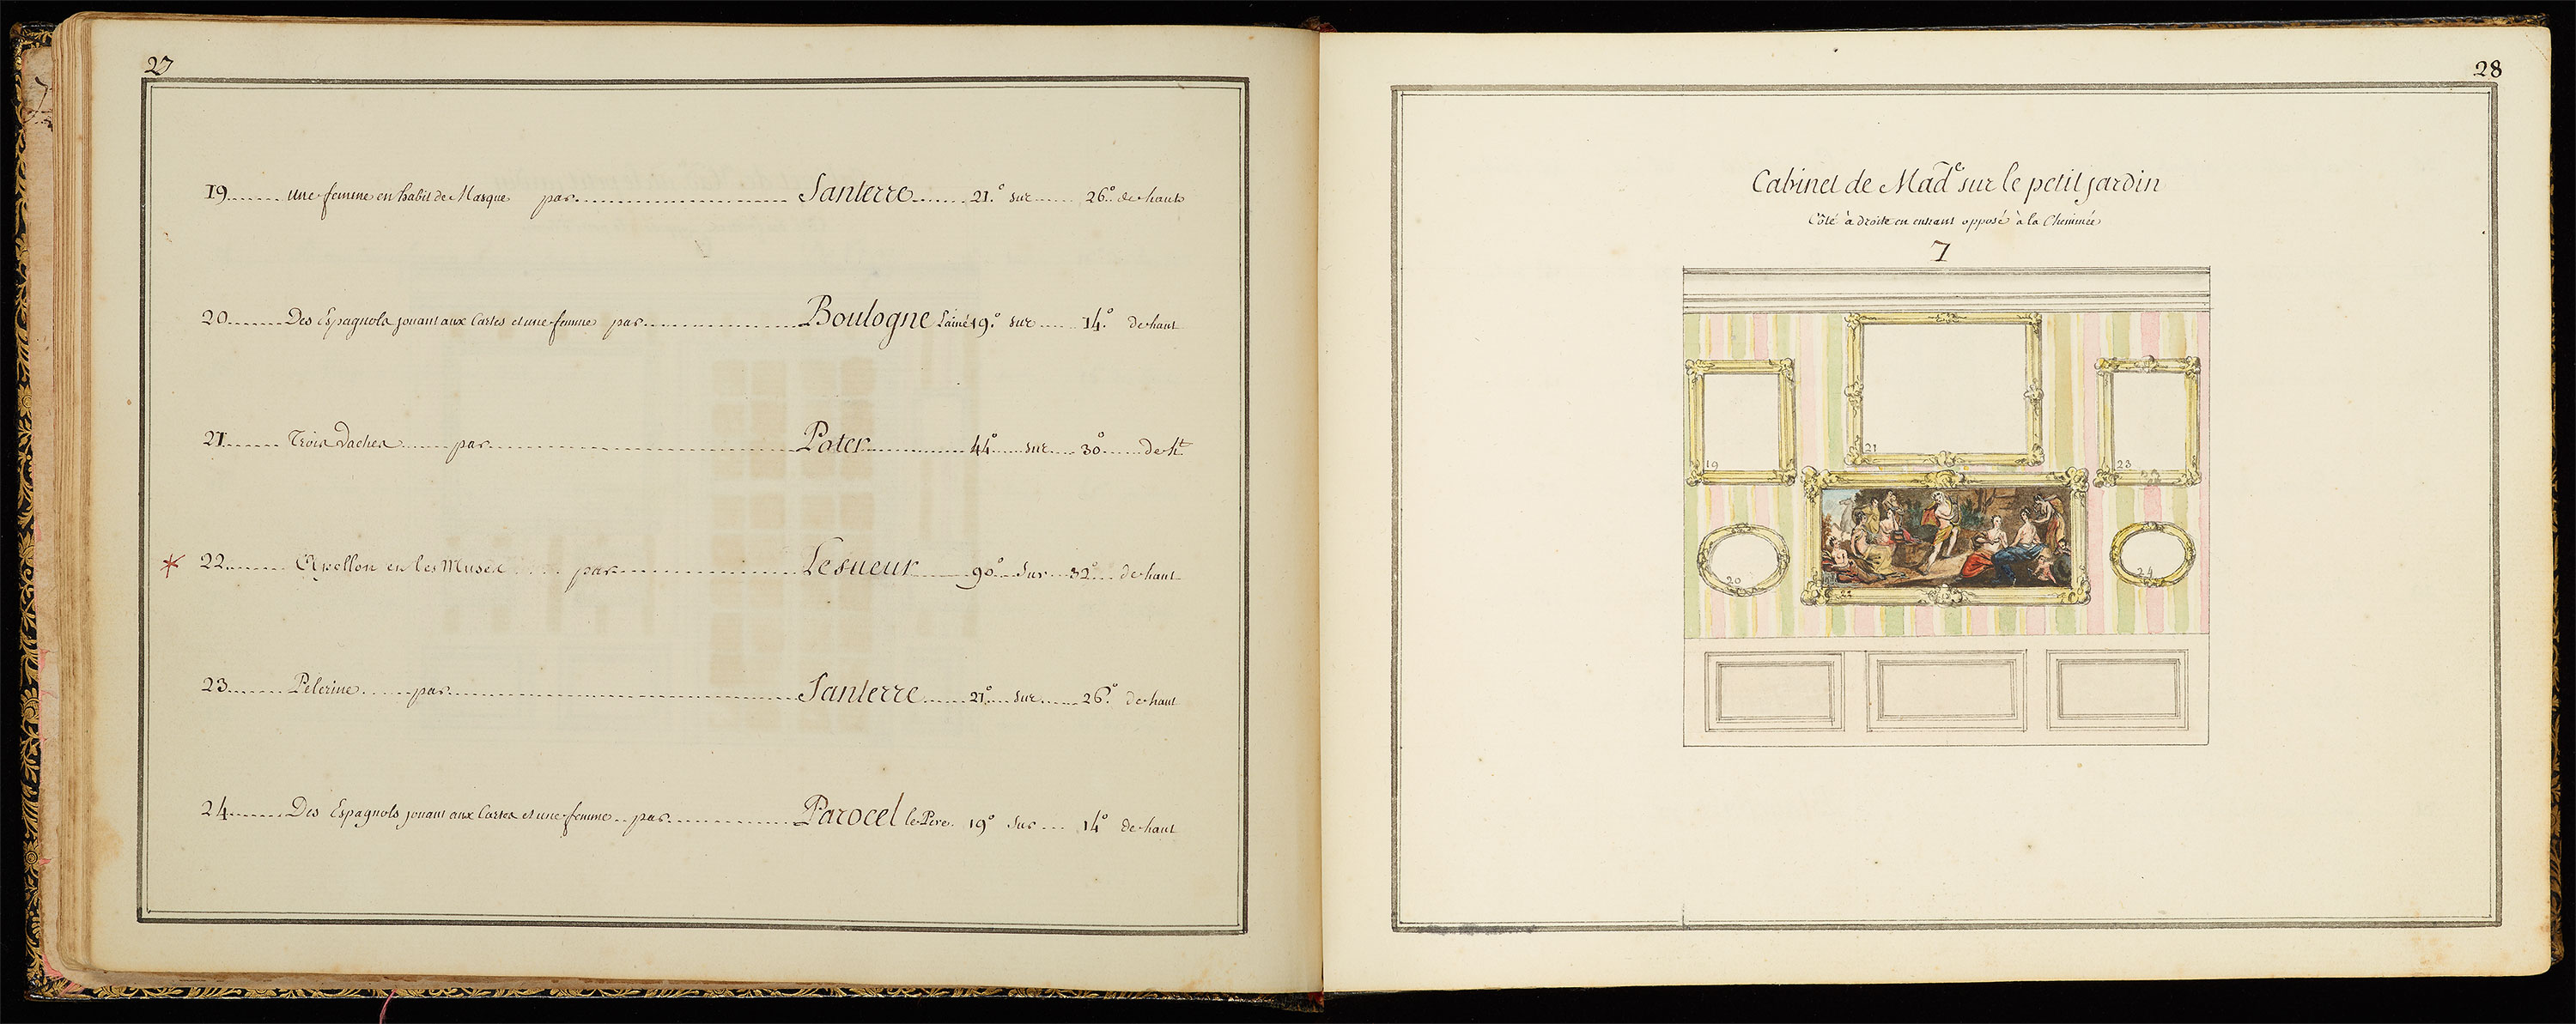 27
19 une femme en habit de Masque par Santerre 21.° sur 26.° de haut
20 Des Espagnols jouant aux Cartes et une femme par Boulogne Lainé 19.° sur 14.° de haut
21 Trois Vaches par Pater 44° sur 30° De ht
* 22 Apollon en les Muses par Lesueur 90° sur 32° de haut
23 Pelerine par Santerre 21° sur 26.° de haut
24 Des Espagnols jouant aux Cartes et une femme par Parocel le Pere 19° sur 14° de haut
28
Cabinet de Made sur le petit jardin
Côté à droite en entrant opposé à la Cheminée
7
21
19
23
22
20
24